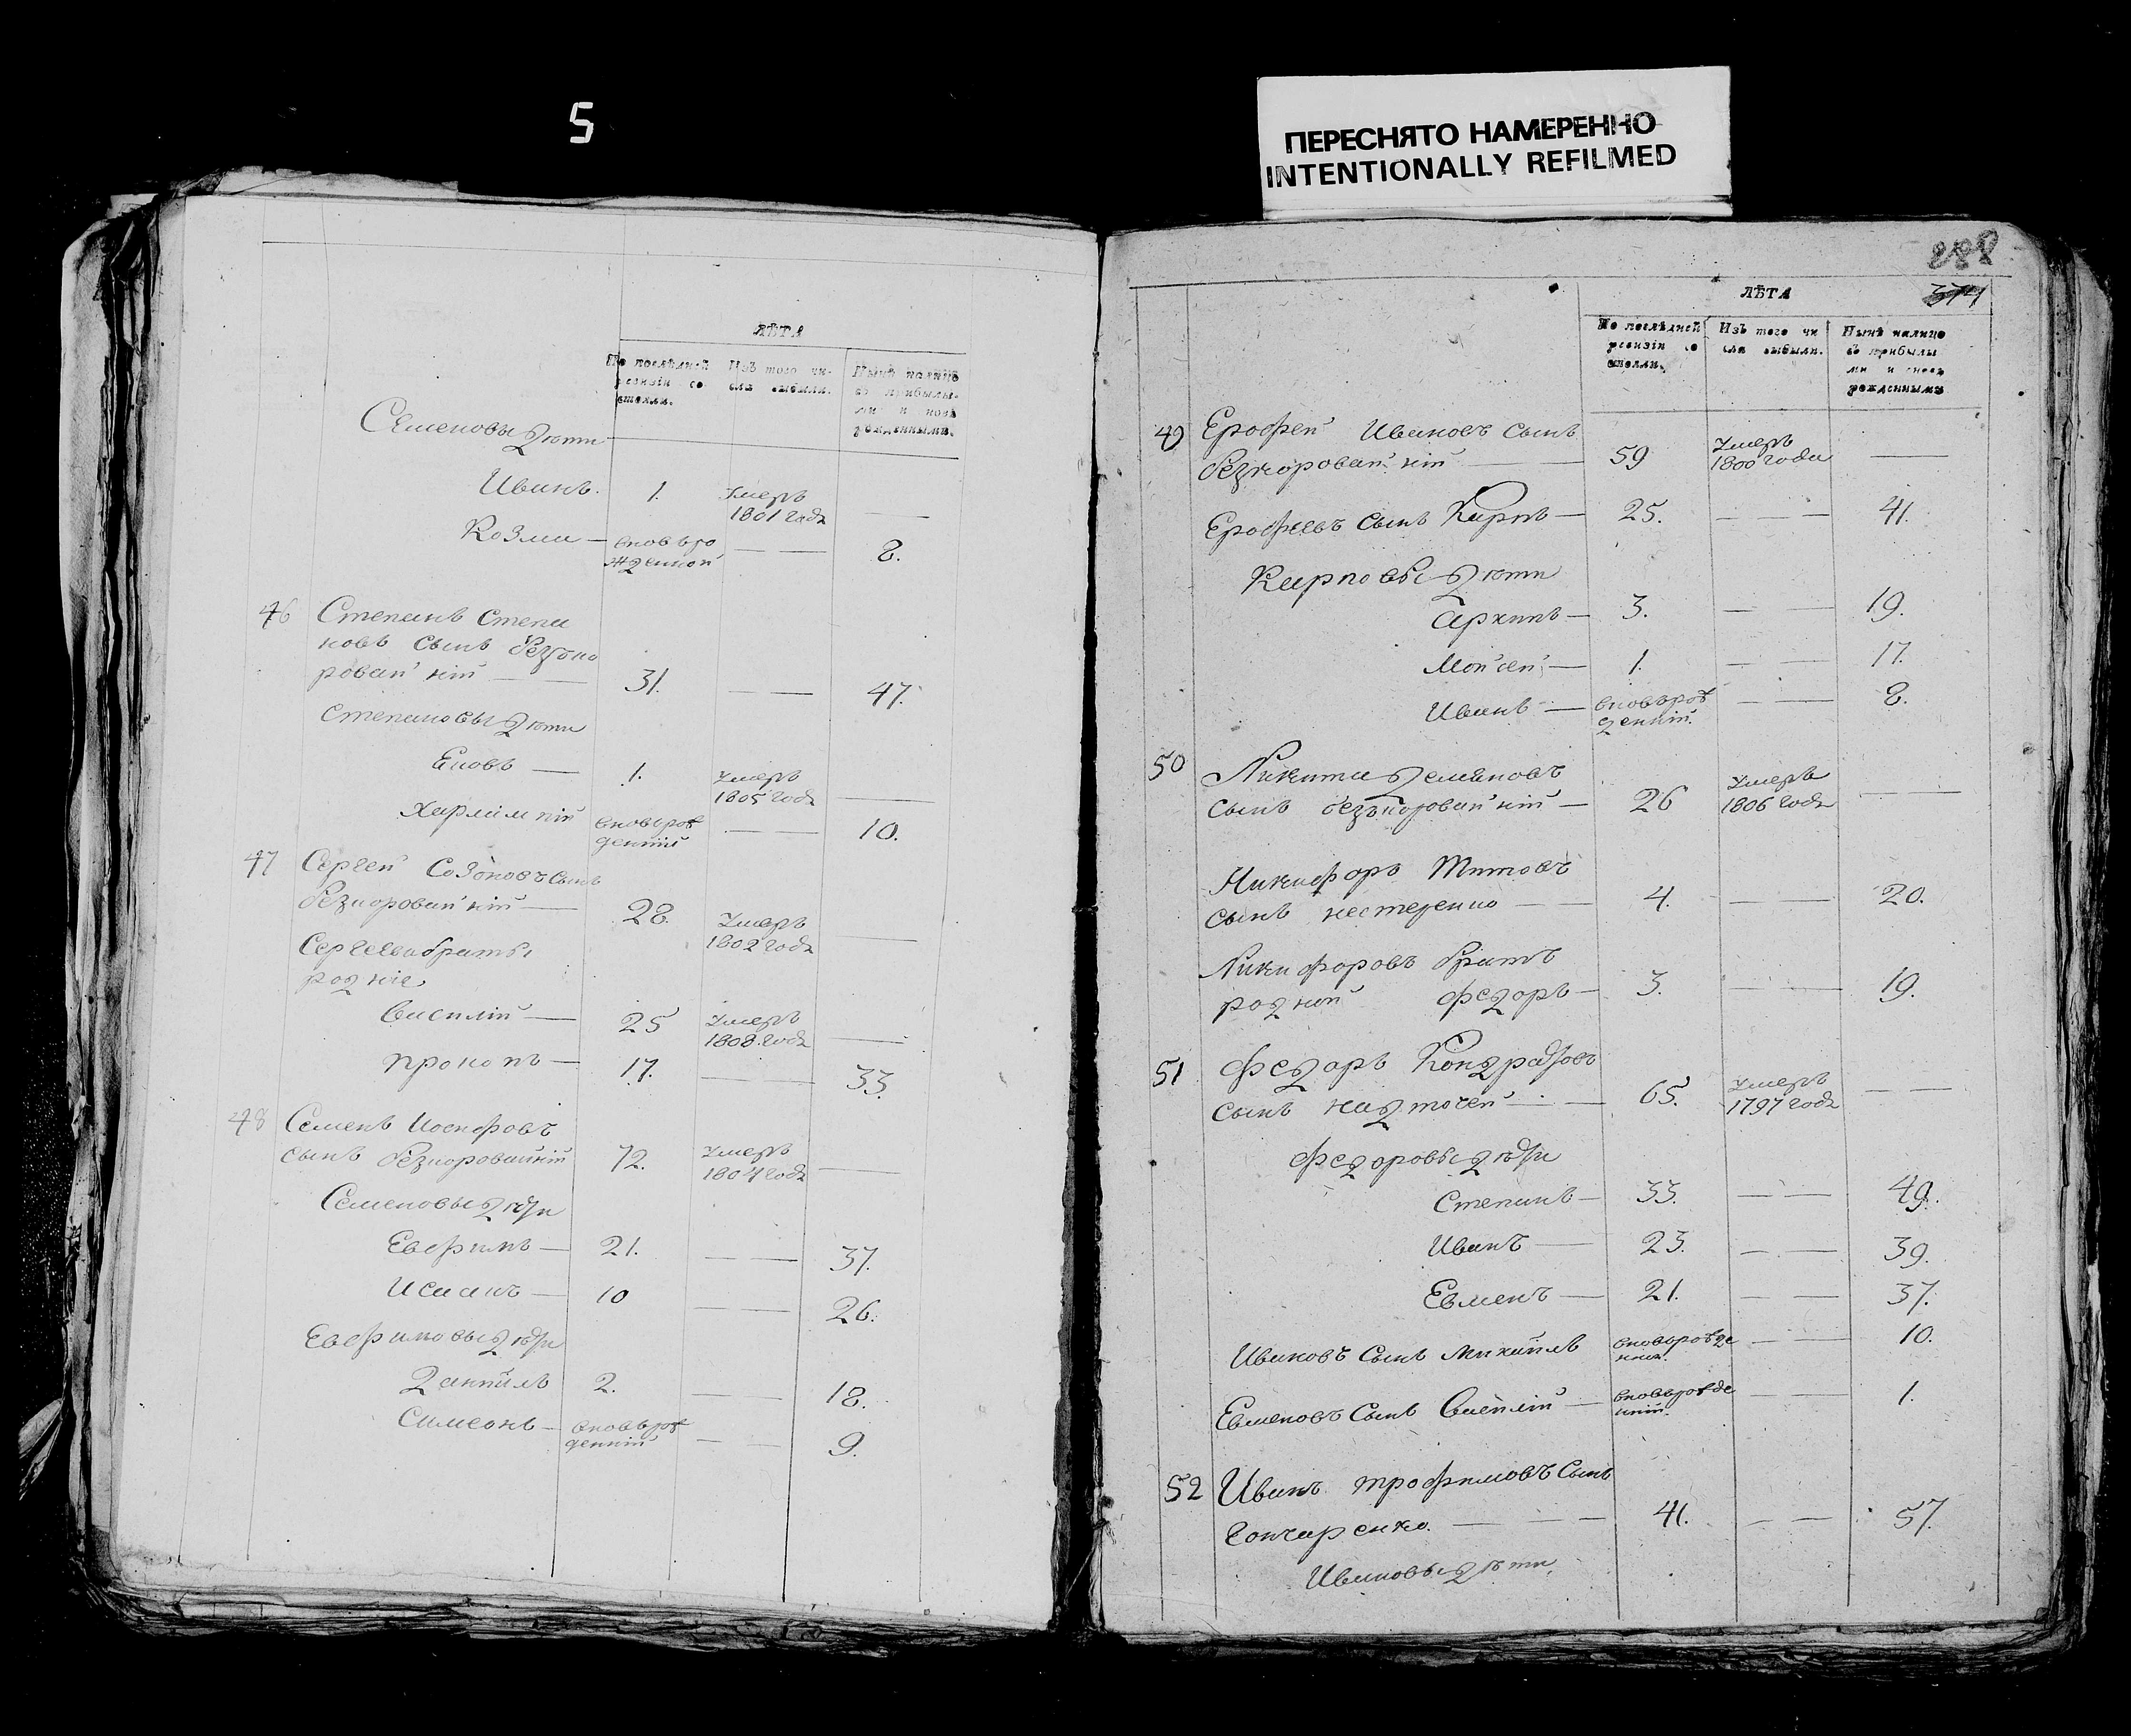 5
ПЕРЕСНЯТО НАМЕРЕННО
INTENTIONALLY REFILMED
ЛѢТА
По послѣдней ревизіи состояли.
Изъ того числа выбыли.
Нынѣ налицо съ прибылыми и новорожденными.
Семеновы дѣти
Иванъ. 1. Умеръ 1801 года —
Козма — вновьрожденной — — 8.
46 Степанъ Степа
новъ сынъ безпо
ровайній — 31. — — 47.
Степановы дѣти
Еновъ — 1. Умеръ 1805 года —
Харлампій вноврожденній — — 10.
47 Сергей Созоновъ сынъ
безпоровайній — 28. Умеръ 1802 года —
Сергеева братья
родніе
Василій — 25 Умеръ 1808. года —
Прокопъ — 17. — 33.
48 Семенъ Иосифовъ
сынъ безпоровайній 72. Умеръ 1804 года —
Семеновы дѣти
Евфимъ — 21. — — 37.
Исаакъ — 10 — — 26.
Евфимовы дѣти
Даніилъ 2. — — 18.
Симеонъ — вновьрожденній — — 9.
288
374
ЛѢТА
По послѣдней ревизіи состояли.
Изъ того числа выбыли.
Нынѣ налицо съ прибылыми и вновь рожденными
49 Ерофей Ивановъ сынъ
безпоровайній — 59 Умеръ 1800 года —
Ерофѣевъ сынъ Карпъ — 25. — — 41.
Карповы дѣти
Архипъ — 3. — — 19.
Мойсей — 1. — — 17.
Иванъ — вновьрожденній. — — 8.
50 Никита Демяновъ
сынъ безъпоровайній — 26 Умеръ 1806 года — —
Никифоръ Титовъ
сынъ нестеренко — — 4. — — 20.
Никифоровъ братъ
родной федоръ — 3. — — 19.
51 Федоръ Кондратовъ
сынъ надточей — — 65. Умеръ 1797 года — —
Федоровы дѣти
Степанъ — 33. — — 49.
Иванъ — 23. — — 39.
Евменъ — 21. — — 37.
Ивановъ сынъ михаилъ вновьрожде — — 10.
Евменовъ сынъ Василій — вновьрожденній. — — 1.
52 Иванъ трофимовъ сынъ
Гончаренко. — — — 41. — — 57.
Ивановы дѣти,